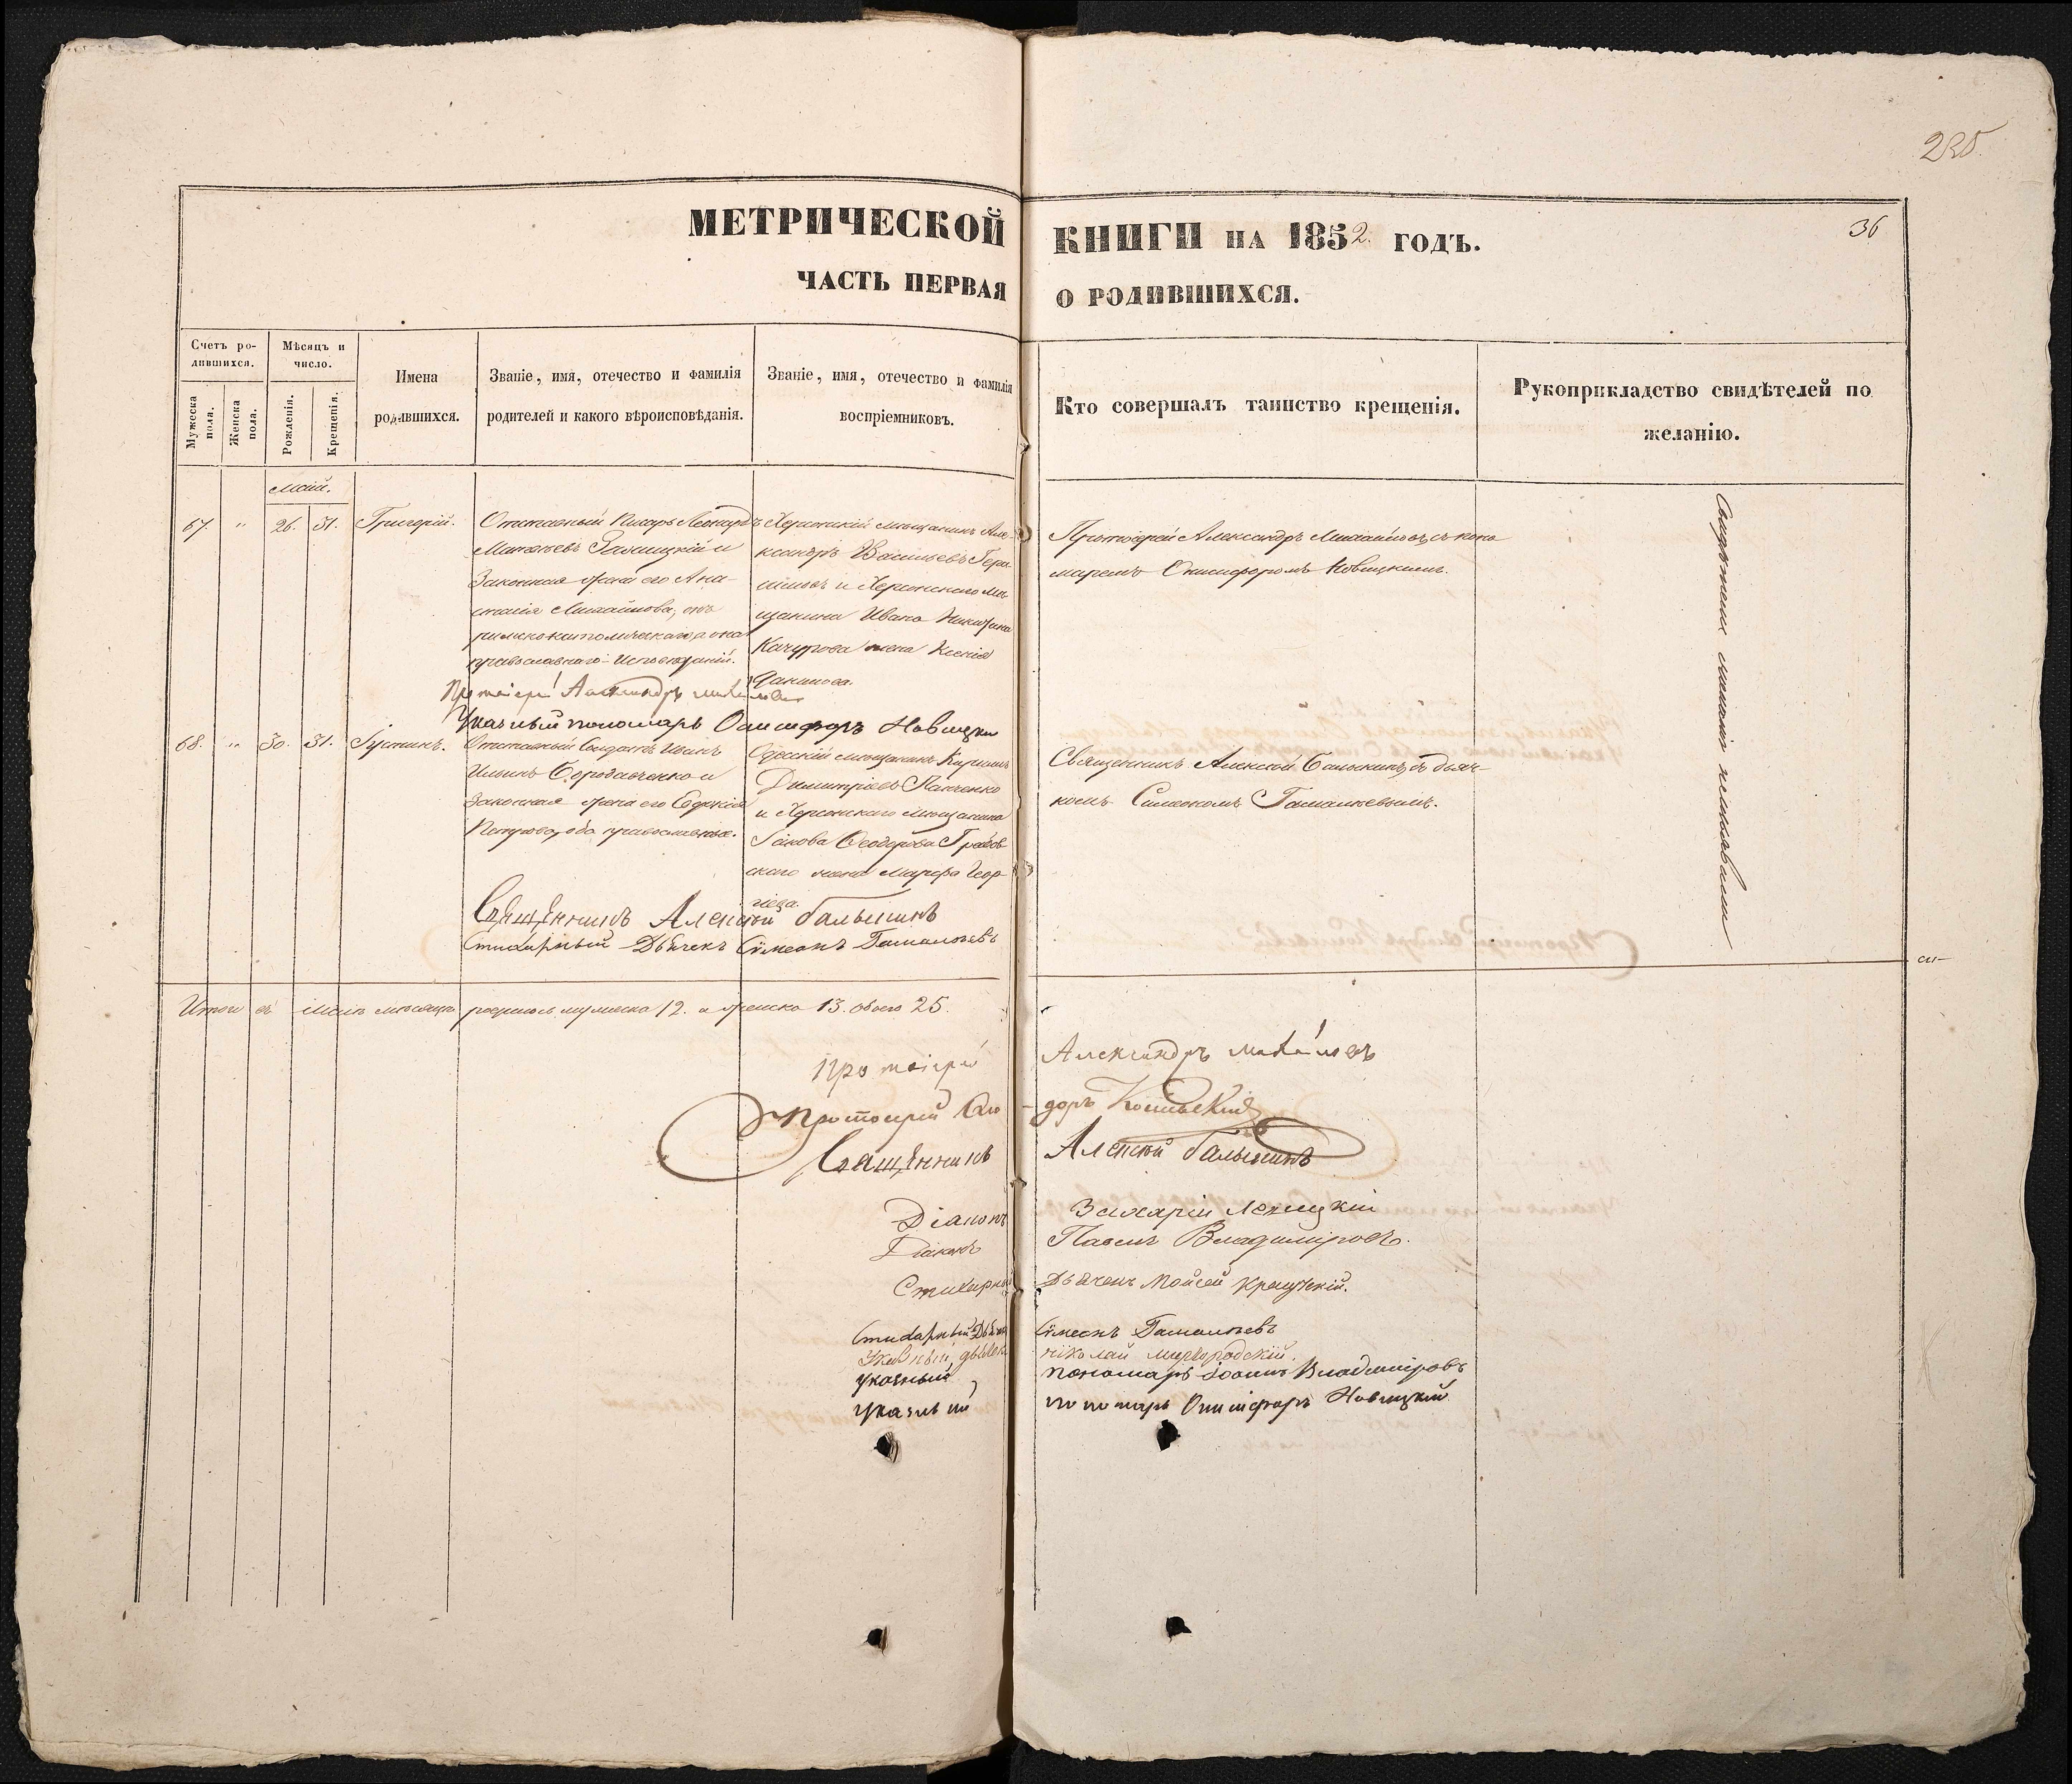 235.
МЕТРИЧЕСКОЙ КНИГИ НА 1852. ГОДЪ.
36
ЧАСТЬ ПЕРВАЯ О РОДИВШИХСЯ.
Счетъ родившихся.
Мужеска пола.
Женска пола.
Мѣсяцъ и число.
Рожденія.
Крещенія.
Имена родившихся.
Званіе, имя, отечество и фамилія
родителей и какого вѣроисповѣданія.
Званіе, имя, отечество и фамилія
воспріемниковъ.
Кто совершалъ таинство крещенія.
Рукоприкладство свидѣтелей по
желанію.
Маій.
67. " 26. 31. Григорій.
Отставный Писарь Леонардъ
Матѳеевъ и
Законная жена его Ана-
стасія Михайлова, онъ
римско-католическаго, а она
православнаго исповѣданій.
Херсонскій мѣщанинъ Але-
ксандръ Васильевъ Гера-
симовъ и Херсонскаго мѣ-
щанина Ивана
Качурова жена Ксенія
Протоіерей Александръ Михайловъ съ поно-
маремъ Онисифоромъ Новицкимъ.
Протоіерей Александръ Михайловъ
Указный пономарь Онисифоръ Новицкій
68. " 30. 31. Іустинъ.
Отставный Солдатъ Иванъ
Ильинъ Бородавченко и
Законная жена его Евдокія
Петрова, оба православные.
Одесскій мѣщанинъ Кирилъ
Димитріевъ Панченко
и Херсонскаго мѣщанина
Іакова Ѳеодорова Грабов-
скаго жена Марфа Геор-
гіева.
Священникъ Алексѣй Балыкинъ съ дьяч-
комъ Симеономъ Гамалѣевымъ.
Священникъ Алексѣй Балыкинъ
Стихарный Дьячекъ Сѷмеонъ Гамалѣевъ
Итого въ Маіи мѣсяцѣ родилось мужеска 12. и женска 13. обоего 25.
Протоіерей Александръ Михайловъ
Протоіерей
Священникъ Алексѣй Балыкинъ
Діаконъ Захарій
Діаконъ Павелъ Владиміровъ.
Стихарный Дьячекъ Мойсей
Стихарный Дьячекъ Сѷмеонъ Гамалѣевъ
Указный дьячекъ Николай Миргородскій.
Указный пономарь Іоаннъ Владиміровъ
Указный пономарь Онисифоръ Новицкій